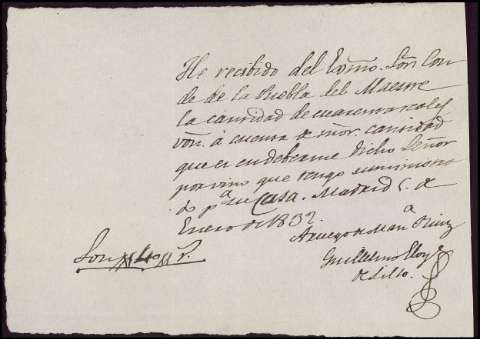 He recibido del Exmo. Sõr. Con
de de la Puebla del Maestre
la cantidad de cuarenta reales
von. á cuenta de mor. cantidad
que es en deberme dicho Señor
por vino que tengo suministra
do pª su Casa. Madrid 5. de
Enero de 1832.
Aruego de Manª Ruiz
Guillelmo Eloy
de Lillo.
Son 40 r.